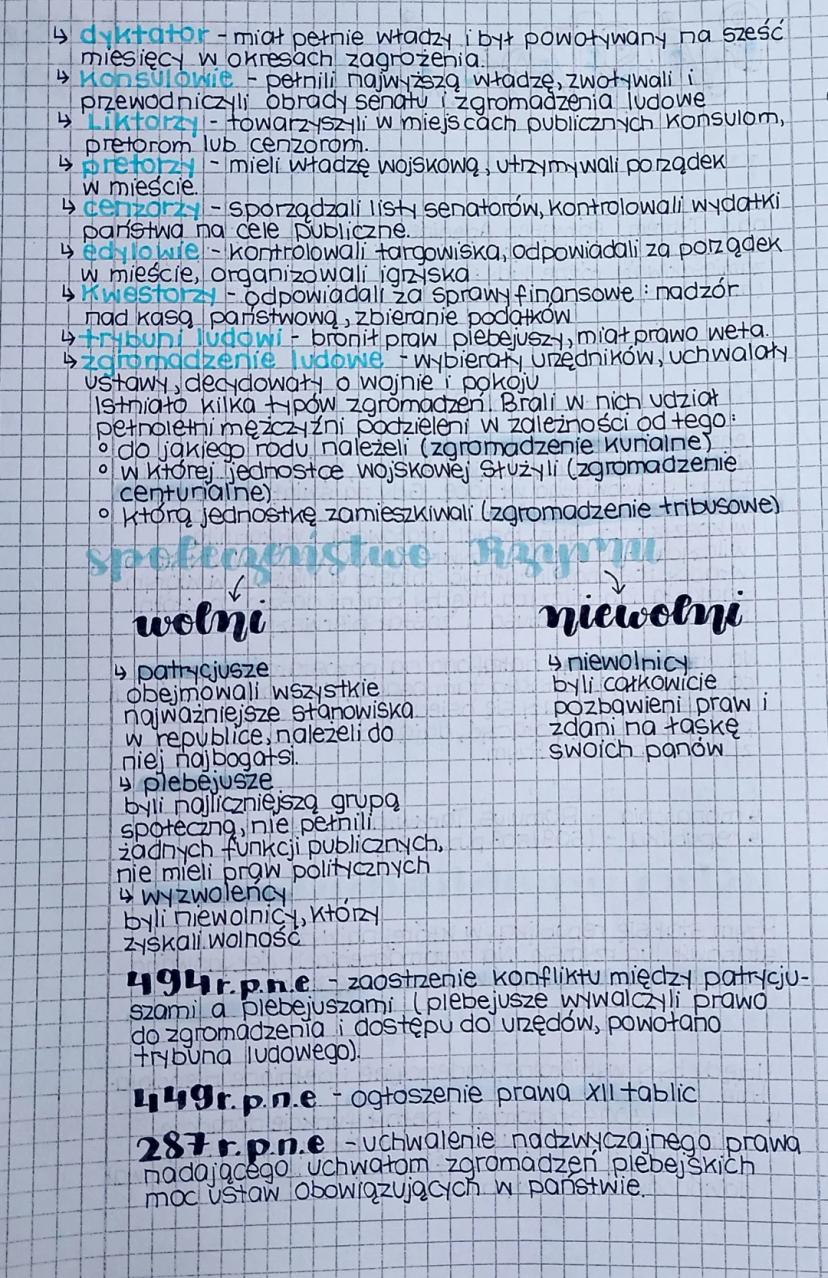 ↳ dyktator - miał pełnie władzy i był powoływany na sześć
miesięcy w okresach zagrożenia.
↳ Konsulowie - pełnili najwyższą władzę, zwoływali i
przewodniczyli obrady senatu i zgromadzenia ludowe
↳ Liktorzy - towarzyszyli w miejscach publicznych konsulom,
pretorom lub cenzorom.
↳ pretorzy - mieli władzę wojskową, utrzymywali porządek
w mieście.
↳ cenzorzy - sporządzali listy senatorów, kontrolowali wydatki
państwa na cele publiczne.
↳ edylowie - kontrolowali targowiska, odpowiadali za porządek
w mieście, organizowali igrzyska
↳ Kwestorzy - odpowiadali za sprawy finansowe : nadzór
nad kasą państwową, zbieranie podatków
↳ trybuni ludowi - bronił praw plebejuszy, miał prawo weta.
↳ zgromadzenie ludowe - wybierały urzędników, uchwalały
ustawy, decydowały o wojnie i pokoju
Istniało kilka typów zgromadzeń. Brali w nich udział
pełnoletni mężczyźni podzieleni w zależności od tego:
o do jakiego rodu należeli (zgromadzenie kurialne)
o w której jednostce wojskowej służyli (zgromadzenie
centurialne)
o którą jednostkę zamieszkiwali (zgromadzenie tribusowe)
społeczeństwo Rzymu
wolni
↳ patrycjusze
obejmowali wszystkie
najważniejsze stanowiska
w republice, należeli do
niej najbogatsi.
↳ plebejusze
byli najliczniejszą grupą
społeczną, nie pełnili
żadnych funkcji publicznych,
nie mieli praw politycznych
↳ wyzwoleńcy
byli niewolnicy, którzy
zyskali wolność
niewolni
↳ niewolnicy
byli całkowicie
pozbawieni praw i
zdani na łaskę
swoich panów
494r.p.n.e - zaostrzenie konfliktu między patrycju-
szami a plebejuszami (plebejusze wywalczyli prawo
do zgromadzenia i dostępu do urzędów, powołano
trybuna ludowego).
449r.p.n.e - ogłoszenie prawa XII tablic
287r.p.n.e - uchwalenie nadzwyczajnego prawa
nadającego uchwałom zgromadzeń plebejskich
moc ustaw obowiązujących w państwie.